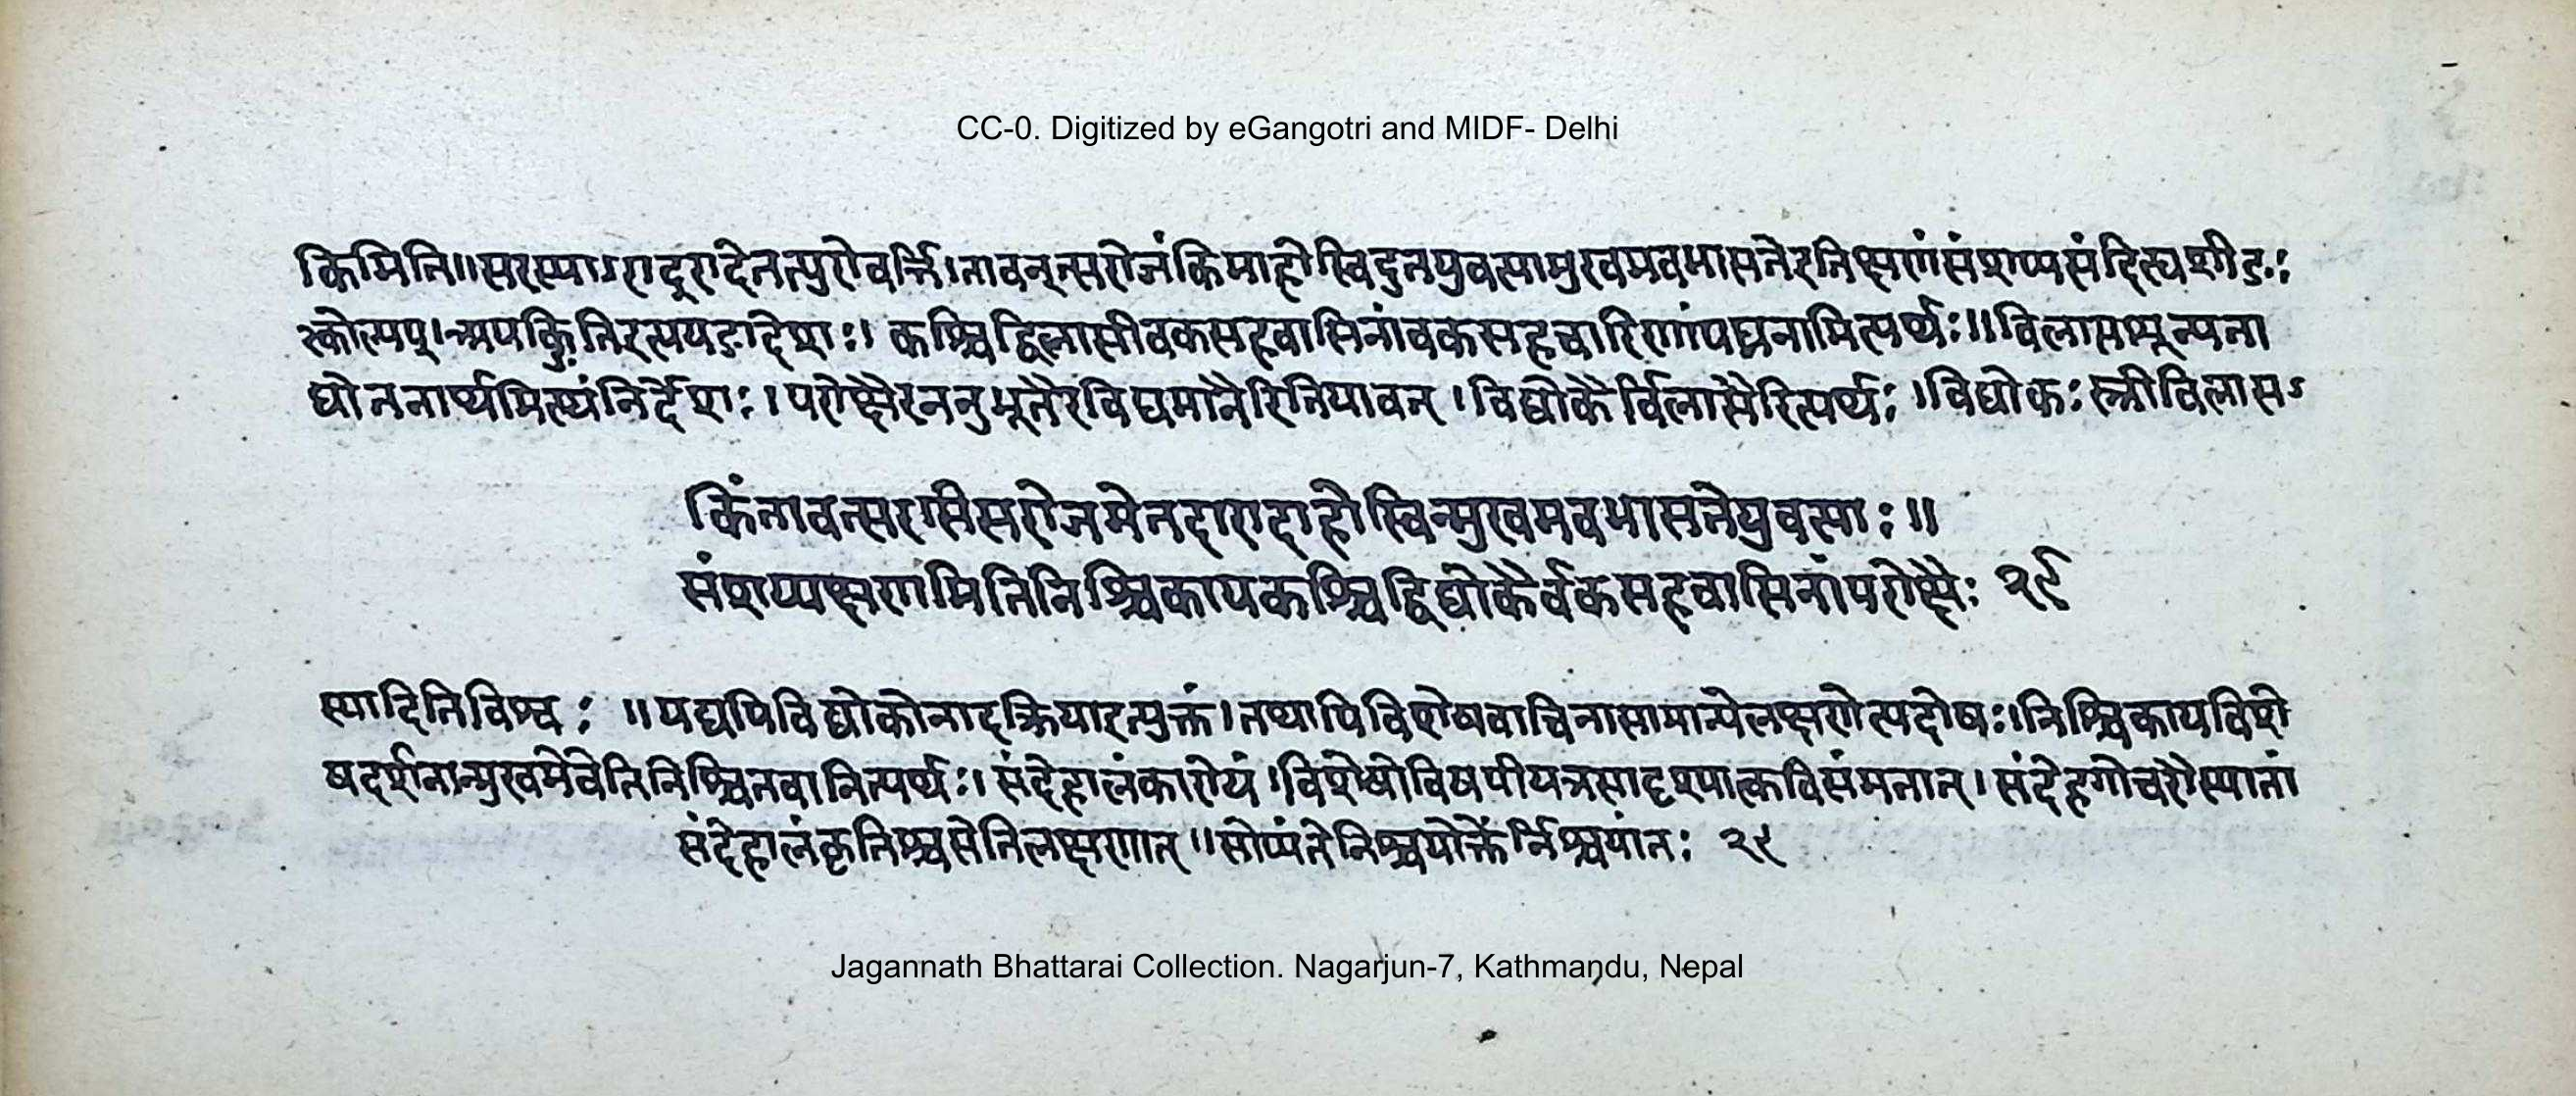 CC-0. Digitized by eGangotri and MIDF- Delhi
किमिति॥सरस्यामारादूरादेतत्पुरोवर्त्ति।तावत्सरोजंकिमाहोस्विदुतयुवत्यामुखमवभासतेइतिक्षणंसंशय्यसंदित्द्यशीङः
क्त्कोल्यप्।अयक्ङितिइत्ययङादेशः।कश्चिद्विलासीबकसहवासिनांबकसहचारिणांपद्मनामित्यर्थः॥विलासशून्यता
द्योतनार्थमित्थंनिर्देशः।परोक्षैरननुभूतैरविद्यमानैरितियावत्।विद्योकैर्विलासैरित्यर्थः।विद्योकःस्त्रीविलासऽ
किंतावत्सरसिसरोजमेतदारादाहोस्विन्मुखमवभासतेयुवत्याः॥
संशय्यक्षणमितिनिश्चिकायकश्चिद्विद्योकैर्बकसहवासिनांपरोक्षैः २९
स्यादितिविश्वः॥यद्यपिविद्योकोनादरक्रियाइत्युक्तं।तथापिविशेषवाचिनासामान्येलक्षणेत्यदोषः।निश्चिकायविशे
षदर्शनान्मुखमेवेतिनिश्चितवानित्यर्थः।संदेहालंकारोयं।विशेषोविषयीयत्रसादृश्यात्कविसंमतात्।संदेहगोचरौस्यातां
संदेहालंकृतिश्चसेतिलक्षणात्॥सोप्यंतेनिश्चयोक्तेर्निश्चयांतः २९
Jagannath Bhattarai Collection. Nagarjun-7, Kathmandu, Nepal